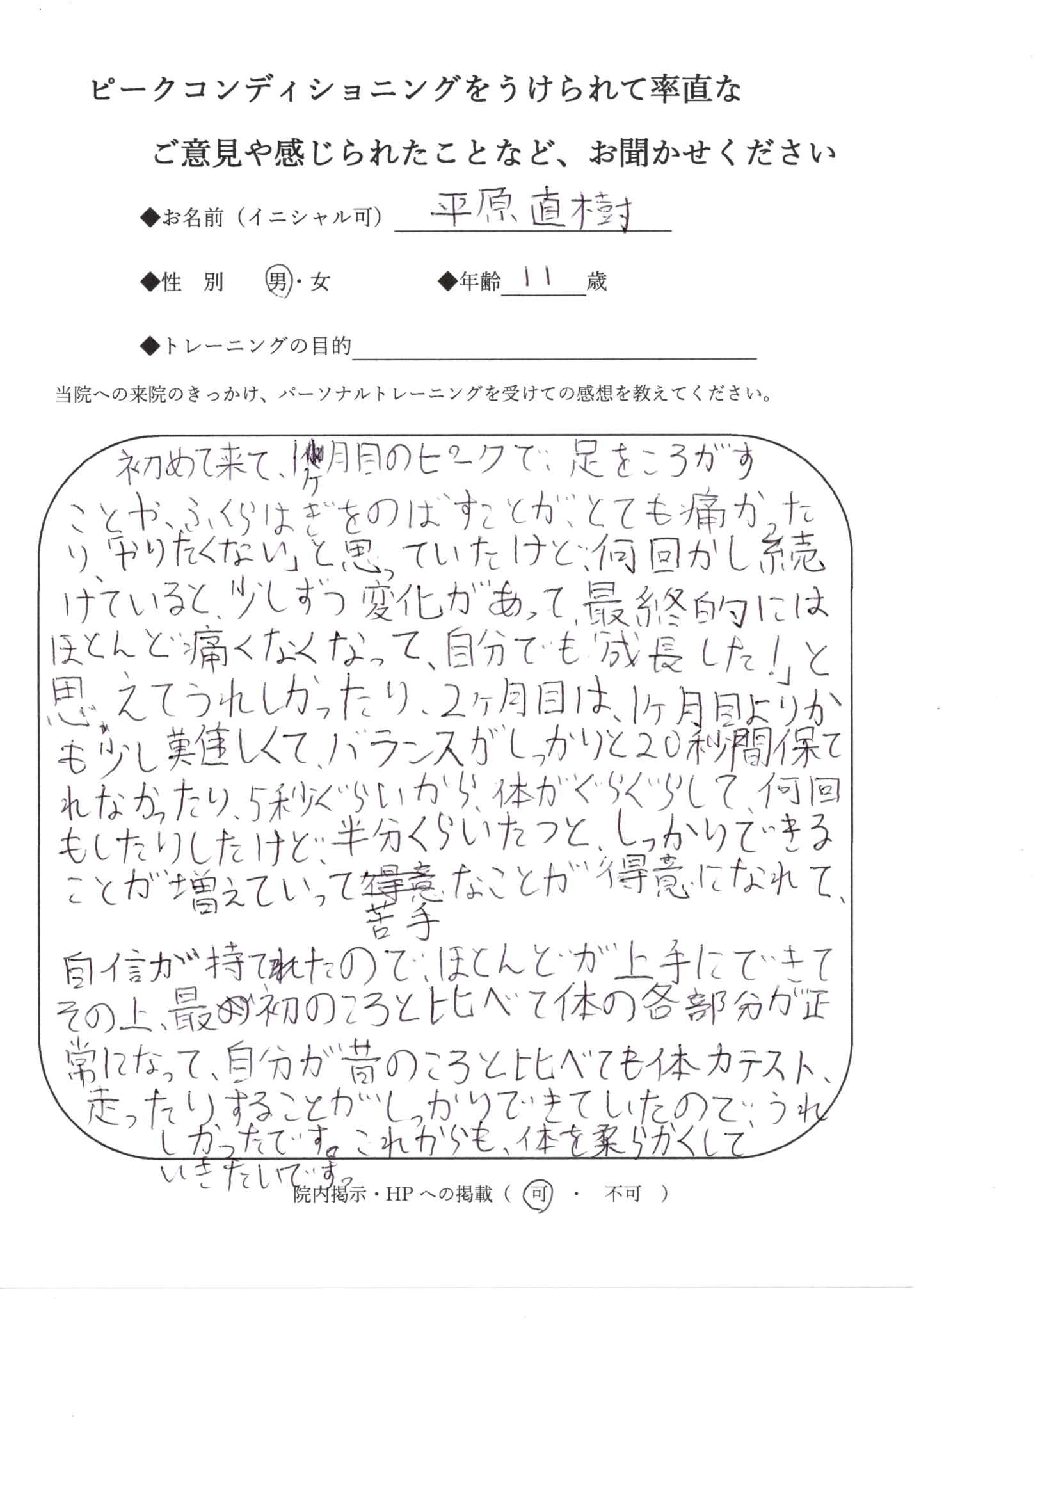 ピークコンディショニングをうけられて率直な
ご意見や感じられたことなど、お聞かせください
◆お名前（イニシャル可） 平原直樹
◆性　別　男・女　◆年齢 11 歳
◆トレーニングの目的
当院への来院のきっかけ、パーソナルトレーニングを受けての感想を教えてください。
初めて来て、1ヶ月目のピークで、足をころがす
ことや、ふくらはぎをのばすことが、とても痛かった
り、「やりたくない」と思っていたけど、何回かし続
けていると、少しずつ変化があって、最終的には
ほとんど痛くなくなって、自分でも「成長した！」と
思えてうれしかったり、2ヶ月目は、1ヶ月目よりか
も少し難しくて、バランスがしっかりと20秒間保て
れなかったり、5秒ぐらいから、体がぐらぐらして、何回
もしたりしたけど、半分くらいたつと、しっかりできる
ことが増えていって苦手なことが得意になれて、
自信が持てれたので、ほとんどが上手にできて
その上、最初のころと比べて体の各部分が正
常になって、自分が昔のころと比べても体力テスト、
走ったりすることがしっかりできていたので、うれ
しかったです。これからも、体を柔らかくして
いきたいです。
院内掲示・HPへの掲載（ 可 ・ 不可 ）